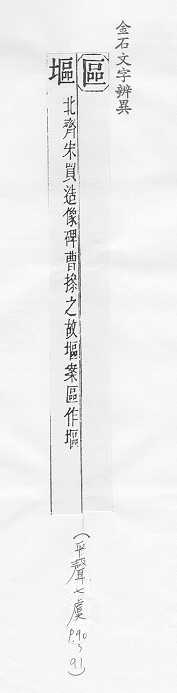 金石文字辨異
區
塸 北齊宋買造像碑曹摻之故塸案區作塸
(平聲七虞 P.90~91)